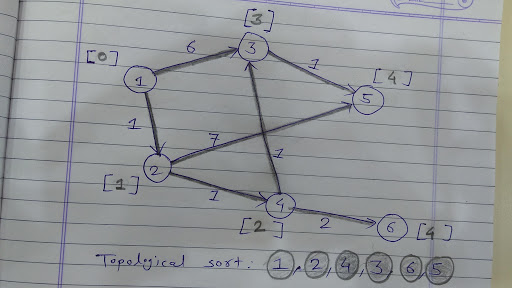 [3]
6
3
[0]
1
1
[4]
5
1
7
2
1
[1]
1
4
[2]
2
6
[4]
Topological sort: 1, 2, 4, 3, 6, 5